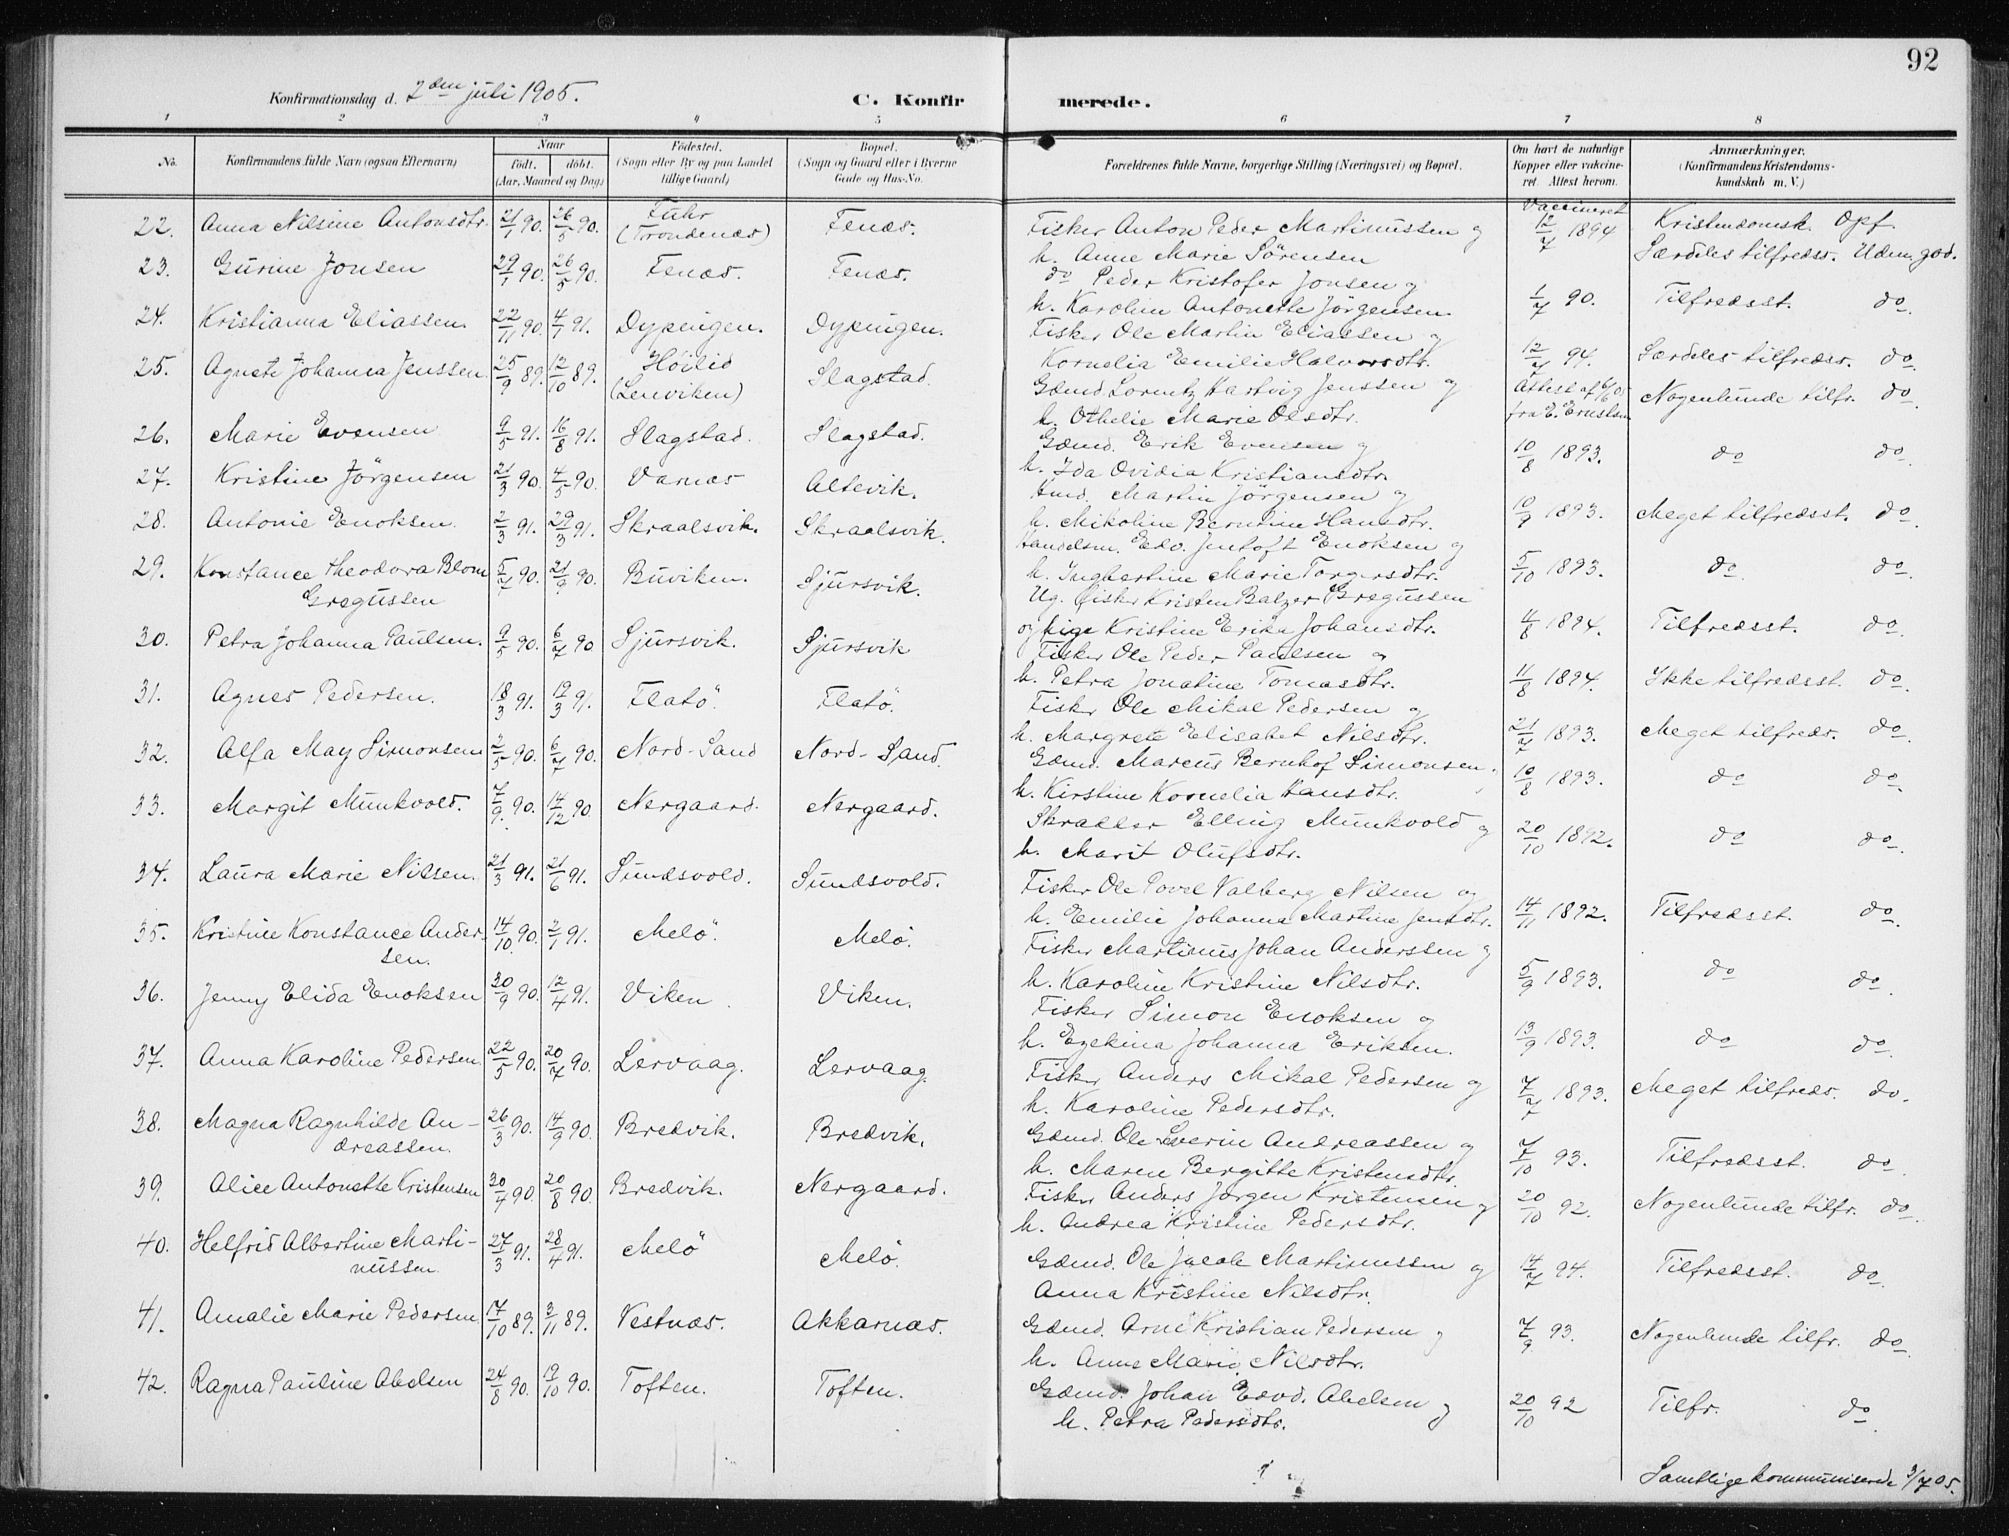 92
Konfirmationsdag d. 2den juli 1905.
C. Konfirmerede.
1 2 3 4 5 6 7 8
No. Konfirmandens fulde Navn (ogsaa Efternavn) Naar født. døbt. (Aar, Maaned og Dag) Fødested. (Sogn eller By og paa Landet tillige Gaard) Bopæl. (Sogn og Gaard eller i Byerne Gade og Hus-No. Forældrenes fulde Navne, borgerlige Stilling (Næringsvei) og Bopæl. Om havt de naturlige Kopper eller vakcineret. Attest herom. Anmærkninger. (Konfirmandens Kristendomskundskab m. V.)
22. Anna Nilsine Antonsdtr. 21/1 90. 26/5 90. Fuhr (Trondenæs) Fenæs. Fisker Anton Peder Martinussen og h. Anne Marie Sörensen Vaccineret 12/7 1894 Kristendomsk. Opf. Særdeles tilfredss. Udm. god.
23. Gurine Jonsen 29/1 90. 26/5 90. Fenæs. Fenæs. do Peder Kristofer Jonsen og h. Karoline Antonette Jörgensen. 1/7 90. Tilfredsst. do.
24. Kristianna Eliassen. 22/11 90. 4/1 91. Dypingen. Dypingen. Fisker Ole Martin Eliassen og Kornelia Emilie Halvorsdtr. 12/7 94. Særdeles tilfredss. do.
25. Agnete Johanna Jenssen 25/9 89. 12/10 89. Höilid (Lenviken) Slagstad. Gdmd. Lorentz Hartvig Jenssen og h. Othelie Marie Olsdtr. Attest af 6/6 05 fra E. Ernstsen Nogenlunde tilfr. do.
26. Marie Evensen 9/5 91. 16/8 91. Slagstad. Slagstad. Gdmd. Erik Evensen og h. Ida Ovidia Kristiansdtr. 10/8 1893. do do.
27. Kristine Jörgensen 21/3 90. 4/5 90. Varnæs Altevik. Hmd. Martin Jörgensen og h. Nikoline Berntine Hansdtr. 10/7 1893. Meget tilfredsst. do.
28. Antonie Enoksen. 2/3 91. 29/3 91. Skraalsvik. Skraalsvik. Handelsm. Edv. Jentoft Enoksen og h. Ingbertine Marie Torgersdtr. 5/10 1893. do. do.
29. Konstance Theodora Blom Gregussen 5/7 90. 21/9 90. Buviken. Sjursvik. Ug. Fisker Kristen Balzer Gregussen og Pige Kristine Erika Johansdtr. 4/8 1894. Tilfredsst. do.
30. Petra Johanna Paulsen. 9/5 90. 6/7 90 Sjursvik. Sjursvik Fisker Ole Peder Paulsen og h. Petra Jonatine Tomasdtr. 11/8 1894. Ikke tilfredsst. do.
31. Agnes Pedersen. 18/3 91. 19/3 91. Flatö. Flatö. Fisker Ole Mikal Pedersen og h. Margrete Elisabet Nilsdtr. 21/7 1893. Meget tilfreds. do.
32. Alfa May Simonsen 2/5 90. 6/7 90. Nord-Sand Nord-Sand. Gdmd. Marcus Bernhof Simonsen. h. Kirstine Kornelia Hansdtr. 10/8 1893. do do.
33. Margit Munkvold. 7/9. 90. 14/12 90. Nergaard. Nergaard. Skrædder Elling Munkvold og h. Marit Olufsdtr. 20/10 1892. do do.
34. Laura Marie Nilsen. 21/3 91. 21/6 91. Sundsvold. Sundsvold. Fisker Ole Povel Valberg Nilsen og h. Emilie Johanna Martine Jensdtr. 14/11 1892. Tilfredsst. do.
35. Kristine Konstance Andersen. 14/10 90. 2/1 91. Melö. Melö. Fisker Martinus Johan Anderssen og h. Karoline Kristine Nilsdtr. 5/9 1893. do do.
36. Jenny Elida Enoksen 30/9 90. 12/4 91. Viken. Viken. Fisker Simon Enoksen og h. Ezekina Johanna Eriksen. 13/9 1893. do do.
37. Anna Karoline Pedersen. 22/5 90. 20/7 90. Lervaag. Lervaag. Fisker Anders Mikal Pedersen og h. Karoline Pedersdtr. 7/7 1893. Meget tilfreds. do.
38. Magna Ragnhilde Andreassen. 26/3 90. 14/9 90. Bredvik. Bredvik. Gdmd. Ole Severin Andreassen og h. Maren Bergitte Kristensdtr. 7/10 93. Tilfredsst. do.
39. Alice Antonette Kristensen 30/4 90. 20/8 90. Bredvik. Nergaard. Fisker Anders Jørgen Kristensen og h. Andrea Kristine Pedersdtr. 20/10 92. Nogenlunde tilfr. do.
40. Helfrid Albertine Martinussen. 27/3 91. 28/4 91. Melö Melö. Gdmd. Ole Jacob Martinussen og Anna Kristine Nilsdtr. 14/7 94. Tilfredsst. do.
41. Amalie Marie Pedersen. 17/10 89. 3/11 89. Vestnæs. Akkarnæs. Gdmd. Arnt Kristian Pedersen og h. Anne Marie Nilsdtr. 7/9 93. Nogenlunde tilfr. do.
42. Ragna Pauline Abelsen 24/8 90. 19/10 90. Toften. Toften. Gdmd. Johan Edvd. Abelsen og h. Petra Pedersdtr. 20/10 92 Tilfr. do
Samtlige kommuniserede 3/7 05.